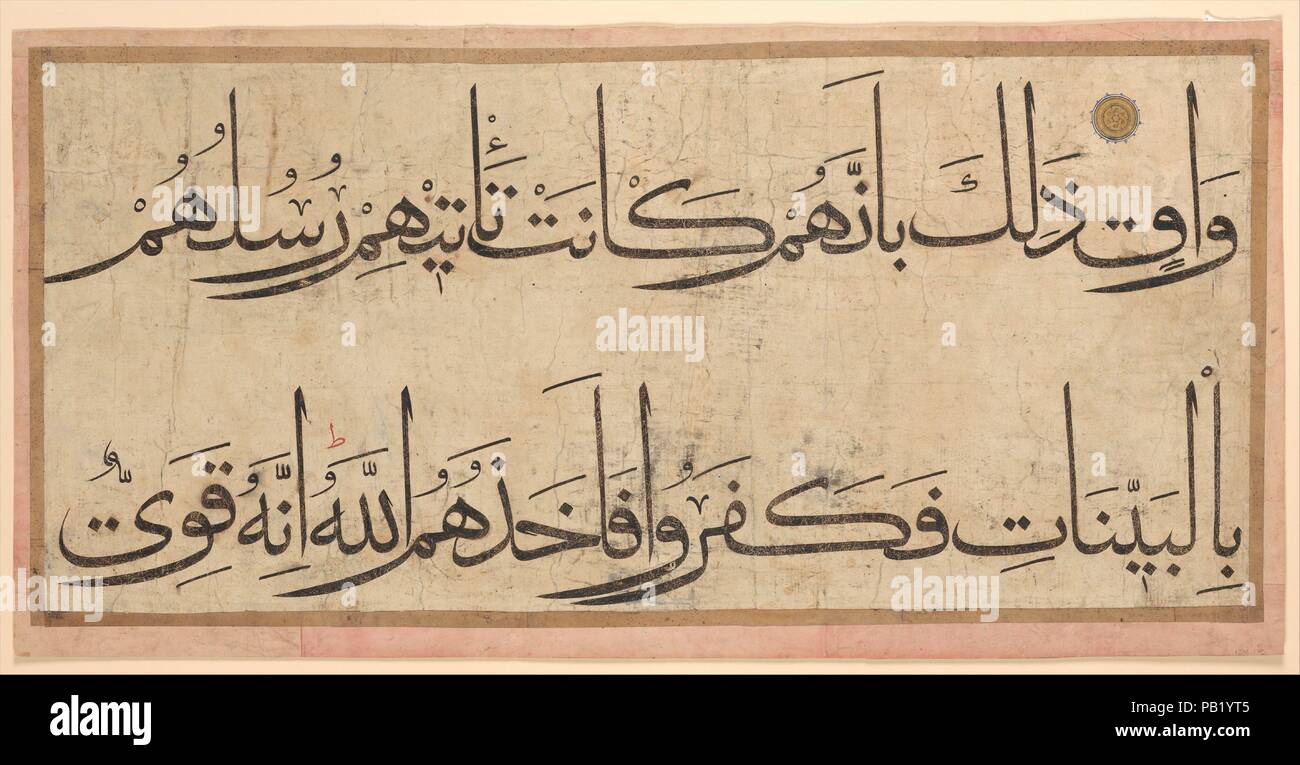 وَاقٍ ذَلِكَ بِاَنَّهُمْ كَانَتْ تَأْتِيْهِمْ رُسُلُهُمْ
بِالْبَيِّنَاتِ فَكَفَرُوا فَاَخَذَهُمُ اللّٰهُ ط اِنَّهُ قَوِىٌّ
alamy
a
alamy
Image ID: PB1YT5
www.alamy.com